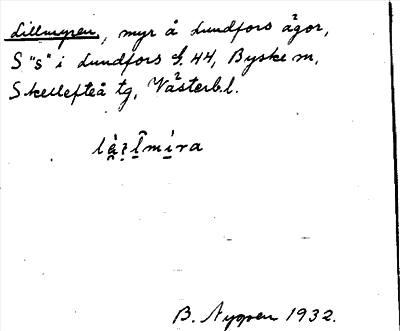 Lillmyren, myr å Lundfors ägor,
S "s" i Lundfors S. 44, Byske sn,
Skellefteå tg, Västerb.l.
B. Nygren 1932.